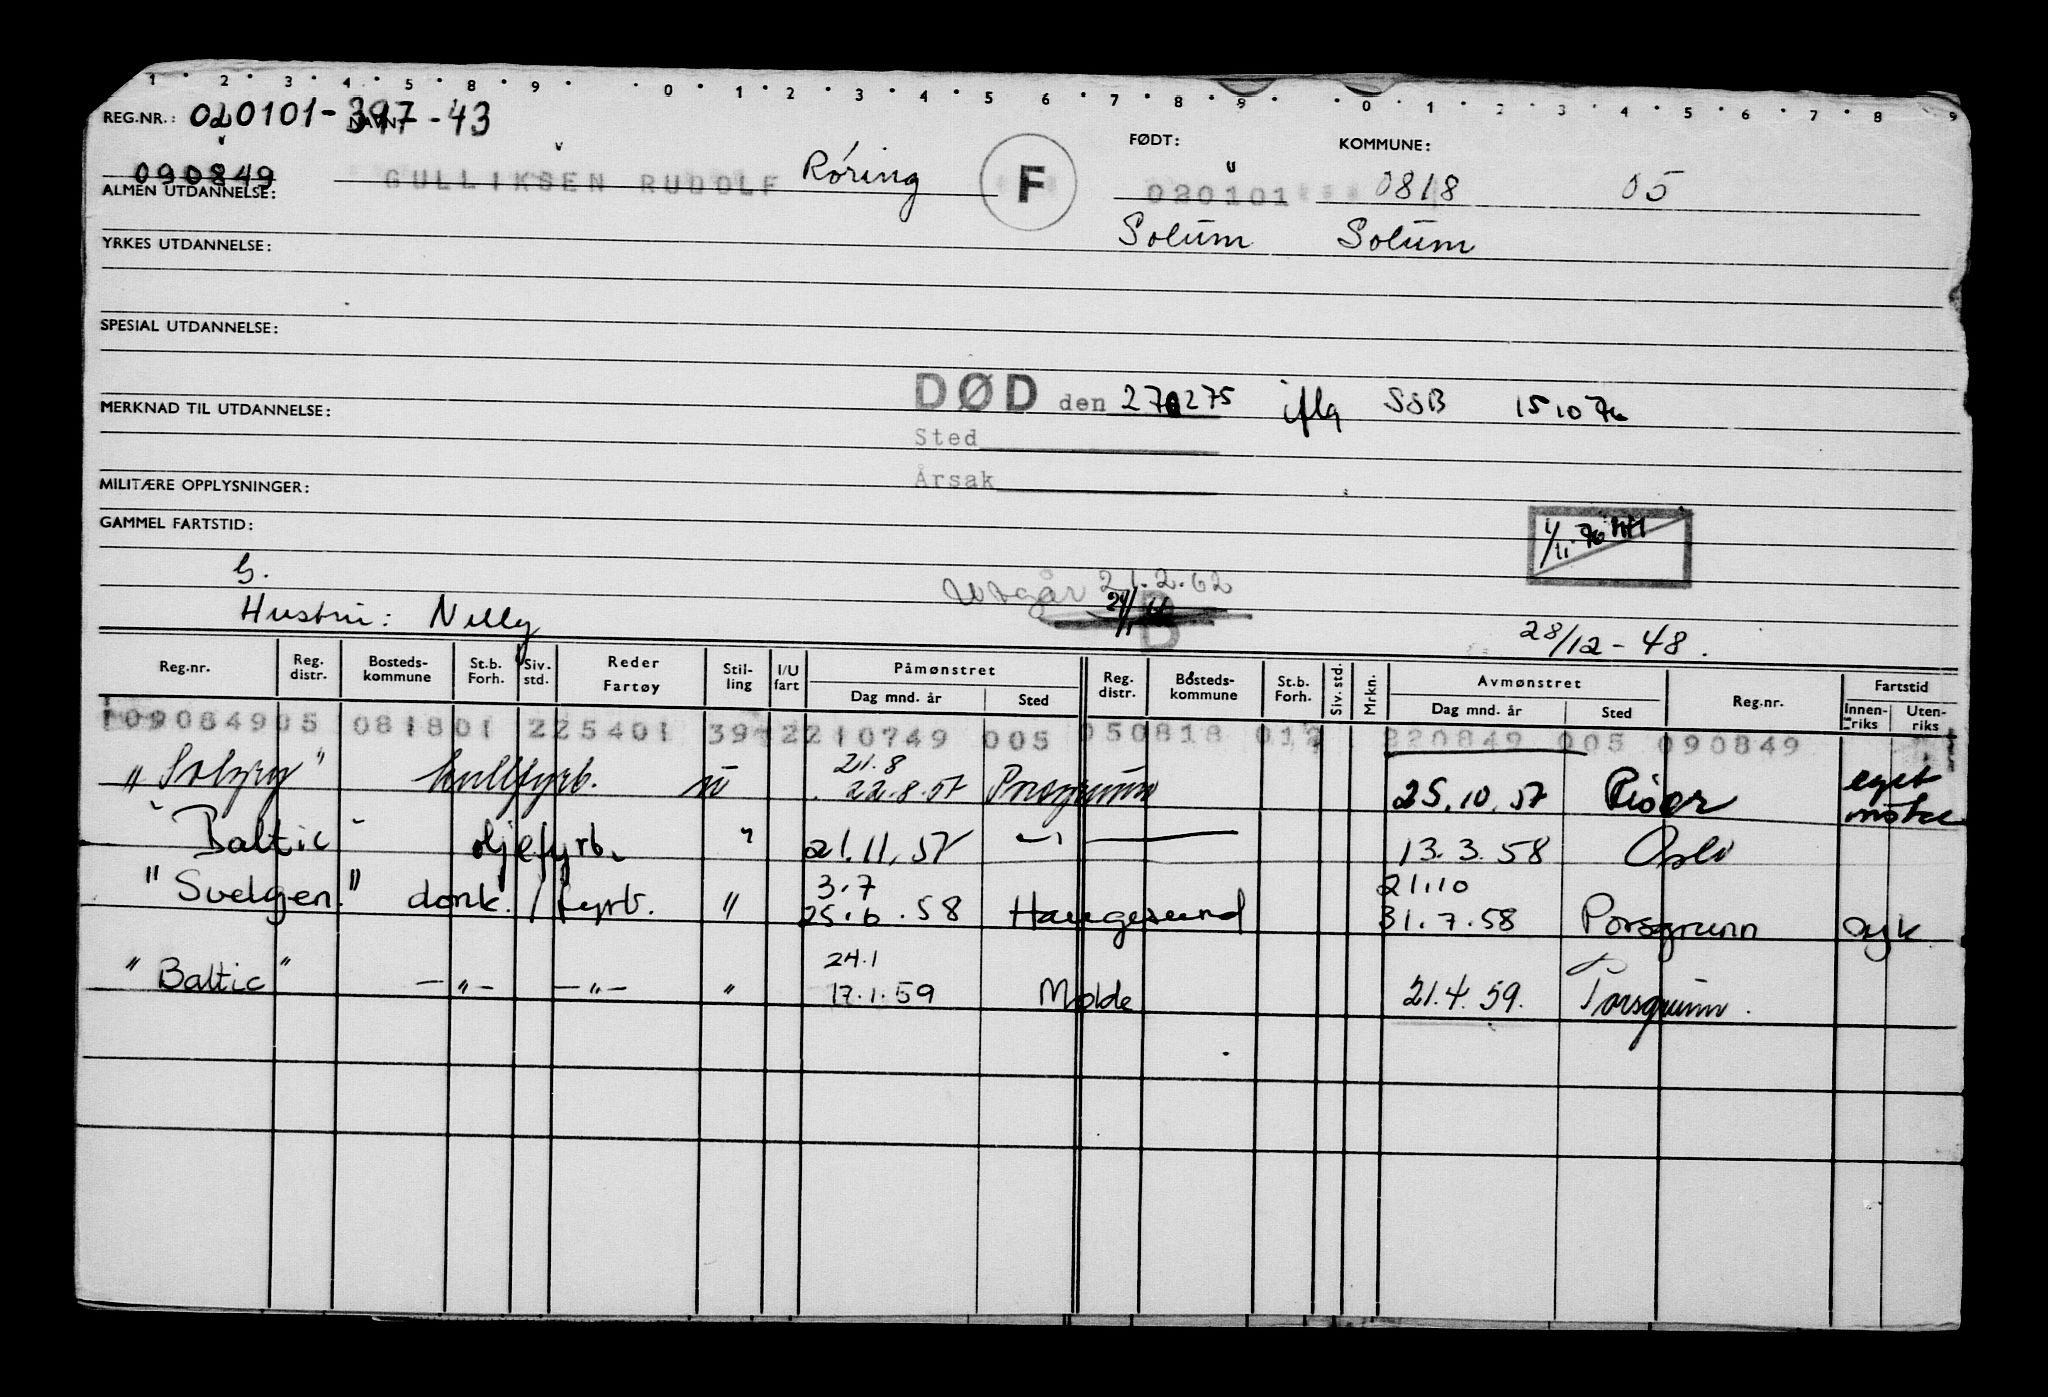 1 2 3 4 5 8 9 0 1 2 3 4 5 6 7 8 9 0 1 2 3 4 5 6 7 8 9
REG.NR.: 020101-397-43 NAVN:
FØDT: KOMMUNE:
090849 GULLIKSEN RUDOLF Röring F 020101 0818 05
ALMEN UTDANNELSE:
Solum Solum
YRKES UTDANNELSE:
SPESIAL UTDANNELSE:
DØD den 270275 iflg SSB 151076
MERKNAD TIL UTDANNELSE:
Sted
Årsak
MILITÆRE OPPLYSNINGER:
GAMMEL FARTSTID:
G.
Utgår 21.2.62
Hustru: Nelly
B
28/12-48.
Reg.nr. Reg. distr. Bosteds-kommune St.b. Forh. Siv. std. Reder Fartøy Stil-ling I/U fart Påmønstret Dag mnd. år Sted Reg. distr. Bosteds-kommune St.b. Forh. Siv. std. Mrkn. Avmønstret Dag mnd. år Sted Reg.nr. Fartstid Innen-riks Uten-riks
09084905 081801 225401 39 2210749 005 050818 012 220849 005 090849
21.8
"Solgry" kullfyrb. u 22.8.57 Porsgrunn 25.10.57 Risør eget ønske
"Baltic" oljefyrb. " 21.11.57 —"— 13.3.58 Oslo
3.7 21.10
"Svelgen" donk./fyrb. " 25.6.58 Haugesund 31.7.58 Porsgrunn syk
24.1
"Baltic" —"— —"— " 17.1.59 Molde 21.4.59. Porsgrunn.